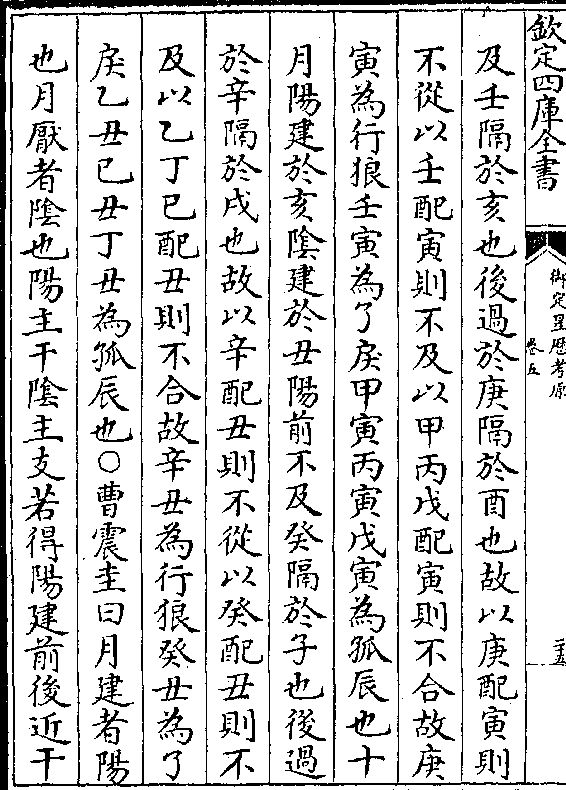 欽定四庫全書
御定星歷考原
卷五
二十五
及壬隔於亥也後過於庚隔於酉也故以庚配寅則
不從以壬配寅則不及以甲丙戊配寅則不合故庚
寅為行狼壬寅為了戾甲寅丙寅戊寅為孤辰也十
月陽建於亥陰建於丑陽前不及癸隔於子也後過
於辛隔於戌也故以辛配丑則不從以癸配丑則不
及以乙丁巳配丑則不合故辛丑為行狼癸丑為了
戾乙丑巳丑丁丑為孤辰也○曹震圭曰月建者陽
也月厭者陰也陽主干陰主支若得陽建前後近干